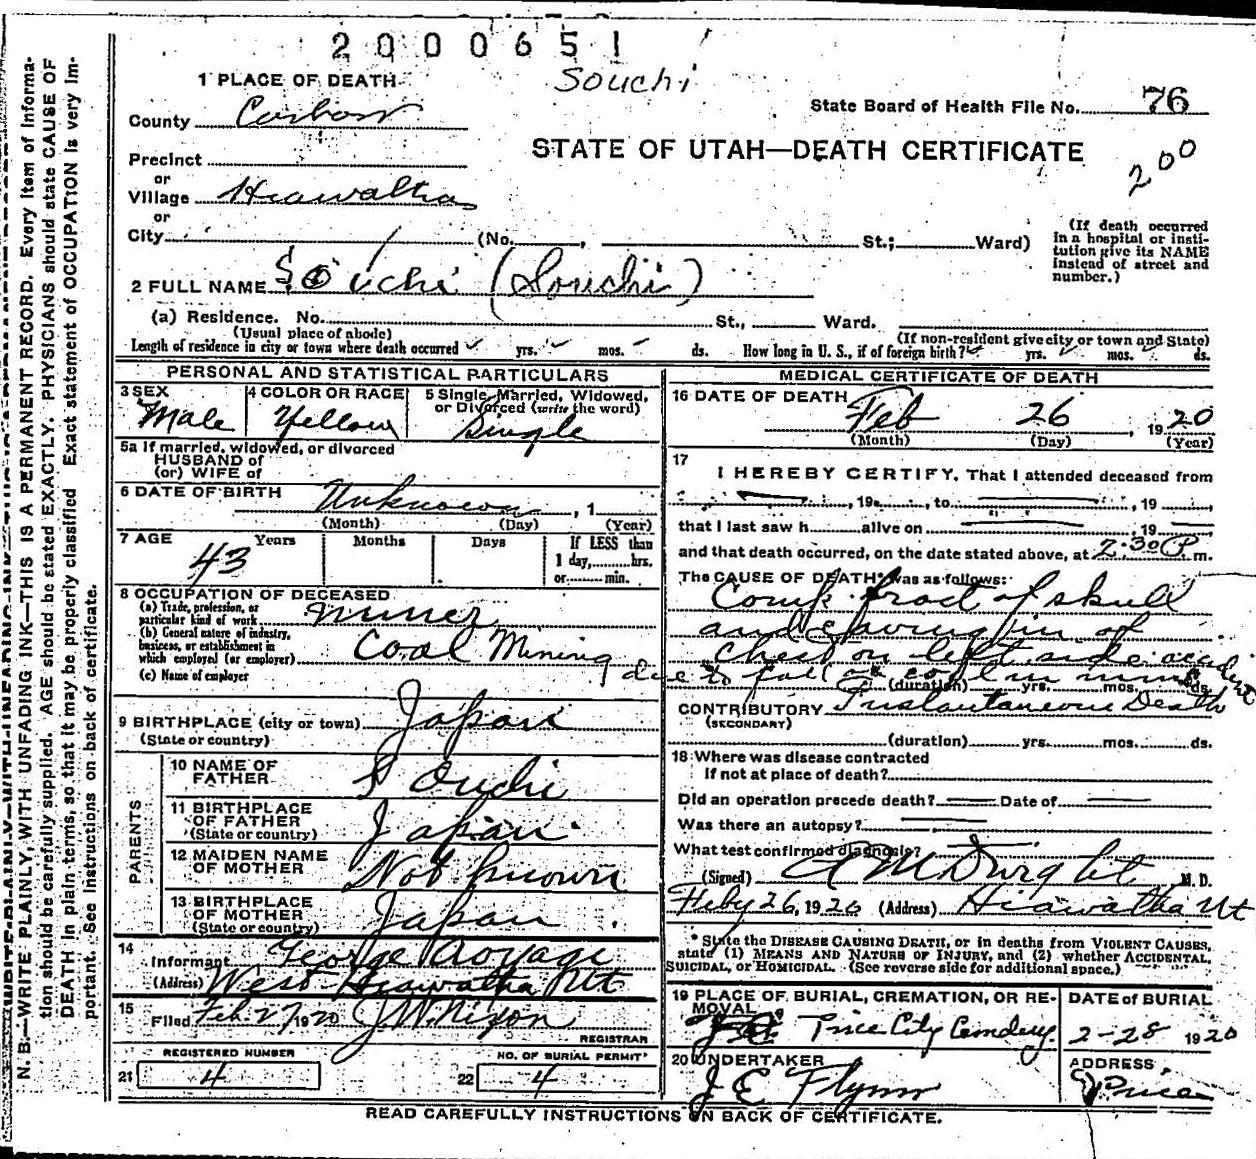 2000651
Souchi
1 PLACE OF DEATH
State Board of Health File No. 76
County Carbon
STATE OF UTAH—DEATH CERTIFICATE
200
Precinct
or
Village Hiawatha
or
City (No. , St.; Ward)
(If death occurred in a hospital or institution give its NAME instead of street and number.)
2 FULL NAME Souchi (Souchi)
(a) Residence. No. St., Ward.
(Usual place of abode) (If non-resident give city or town and State)
Length of residence in city or town where death occurred yrs. mos. ds. How long in U. S., if of foreign birth? yrs. mos. ds.
PERSONAL AND STATISTICAL PARTICULARS
3 SEX Male
4 COLOR OR RACE Yellow
5 Single, Married, Widowed, or Divorced (write the word) Single
5a If married, widowed, or divorced
HUSBAND of
(or) WIFE of
6 DATE OF BIRTH Unknown, 1
(Month) (Day) (Year)
7 AGE 43 Years Months Days If LESS than 1 day, hrs. or min.
8 OCCUPATION OF DECEASED
(a) Trade, profession, or particular kind of work miner
(b) General nature of industry, business, or establishment in which employed (or employer) Coal Mining
(c) Name of employer
9 BIRTHPLACE (city or town) Japan
(State or country)
PARENTS
10 NAME OF FATHER S Ouchi
11 BIRTHPLACE OF FATHER Japan
(State or country)
12 MAIDEN NAME OF MOTHER Not known
13 BIRTHPLACE OF MOTHER Japan
(State or country)
14 Informant George Aoyagi
(Address) West Hiawatha Ut
15 Filed Feb. 27 1920 J. W. Nixon
REGISTRAR
REGISTERED NUMBER
21 4
NO. OF BURIAL PERMIT
22 4
MEDICAL CERTIFICATE OF DEATH
16 DATE OF DEATH
Feb 26, 1920
(Month) (Day) (Year)
17 I HEREBY CERTIFY, That I attended deceased from
, 19 , to , 19 ,
that I last saw h alive on 19
and that death occurred, on the date stated above, at 2:30 P m.
The CAUSE OF DEATH* was as follows:
Comp. fract of skull
and caving in of
chest on left side accident
due to fall of coal in mine
(duration) yrs. mos. ds.
CONTRIBUTORY Instantaneous Death
(SECONDARY)
(duration) yrs. mos. ds.
18 Where was disease contracted
If not at place of death?
Did an operation precede death? Date of
Was there an autopsy?
What test confirmed diagnosis?
(Signed) A M Dwight M. D.
Feby 26, 1920 (Address) Hiawatha Ut
* State the DISEASE CAUSING DEATH, or in deaths from VIOLENT CAUSES,
state (1) MEANS AND NATURE OF INJURY, and (2) whether ACCIDENTAL,
SUICIDAL, or HOMICIDAL. (See reverse side for additional space.)
19 PLACE OF BURIAL, CREMATION, OR REMOVAL
Price City Cemetery
DATE of BURIAL
2-28 1920
20 UNDERTAKER
J E Flynn
ADDRESS
Price
READ CAREFULLY INSTRUCTIONS ON BACK OF CERTIFICATE.
N. B—WRITE PLAINLY, WITH UNFADING INK—THIS IS A PERMANENT RECORD. Every item of information should be carefully supplied. AGE should be stated EXACTLY. PHYSICIANS should state CAUSE OF DEATH in plain terms, so that it may be properly classified. Exact statement of OCCUPATION is very important. See instructions on back of certificate.